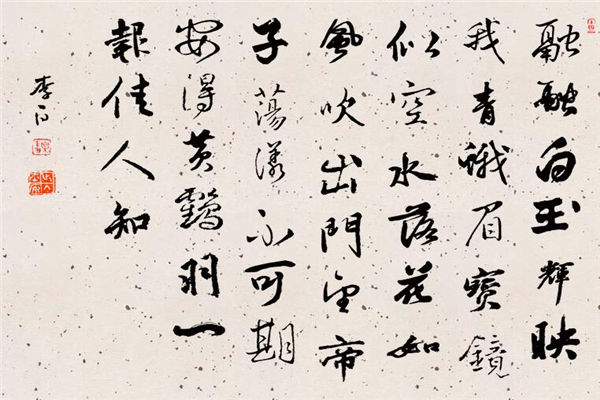 融融白玉輝映
我青蛾眉寶鏡
似空水落花如
風吹出門望帝
子蕩漾不可期
安得黄鶴羽一
報佳人知
李白